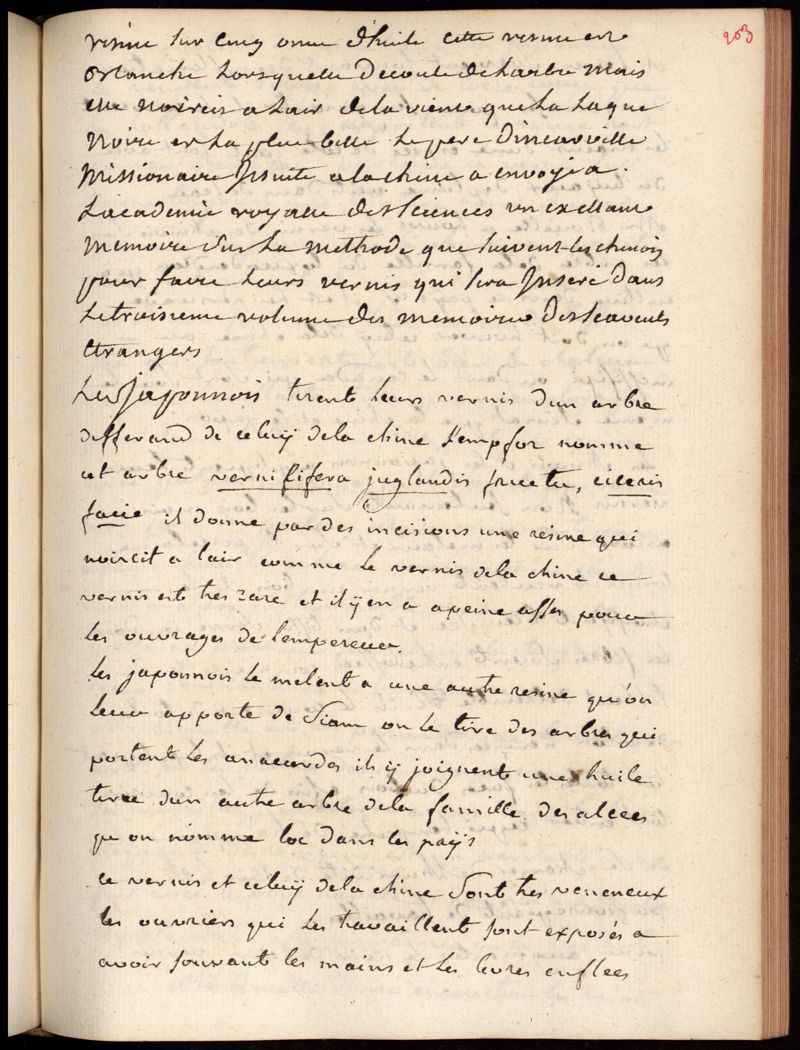 203
resine sur cinq once d'huile cette resine est
blanche lorsquelle decoule de larbre mais
elle noircis a lair de la vient que la laque
noire est la plus belle le pere dincarville
Missionaire Jesuite a la chine a envoyé a
Lacademie royalle des sciences un exellant
memoire sur la methode que suivent les chinois
pour faire leurs vernis qui sera Inseré dans
le troisieme volume des memoires des scavents
Etrangers
Les Japonnois tirent leurs vernis d'un arbre
differand de celuÿ de la chine Kempfor nomme
cet arbre vernififera juglandis fructu, ciceris
facie il donne par des incisions une resine qui
noircit a lair comme le vernis de la chine ce
vernis est tres rare et il ÿ en a apeine asses pour
les ouvrages de l'empereur.
les japonnois le melent a une autre resine qu'on
leur apporte de Siam on le tire des arbres qui
portent les anacardes ils ÿ joignent une huile
tiree d'un autre arbre de la famille des alcees
qu on nomme loc dans les paÿs
ce vernis et celuÿ de la chine sont tres veneneux
les ouvriers qui les travaillent sont exposés a
avoir souvant les mains et les levres enflees